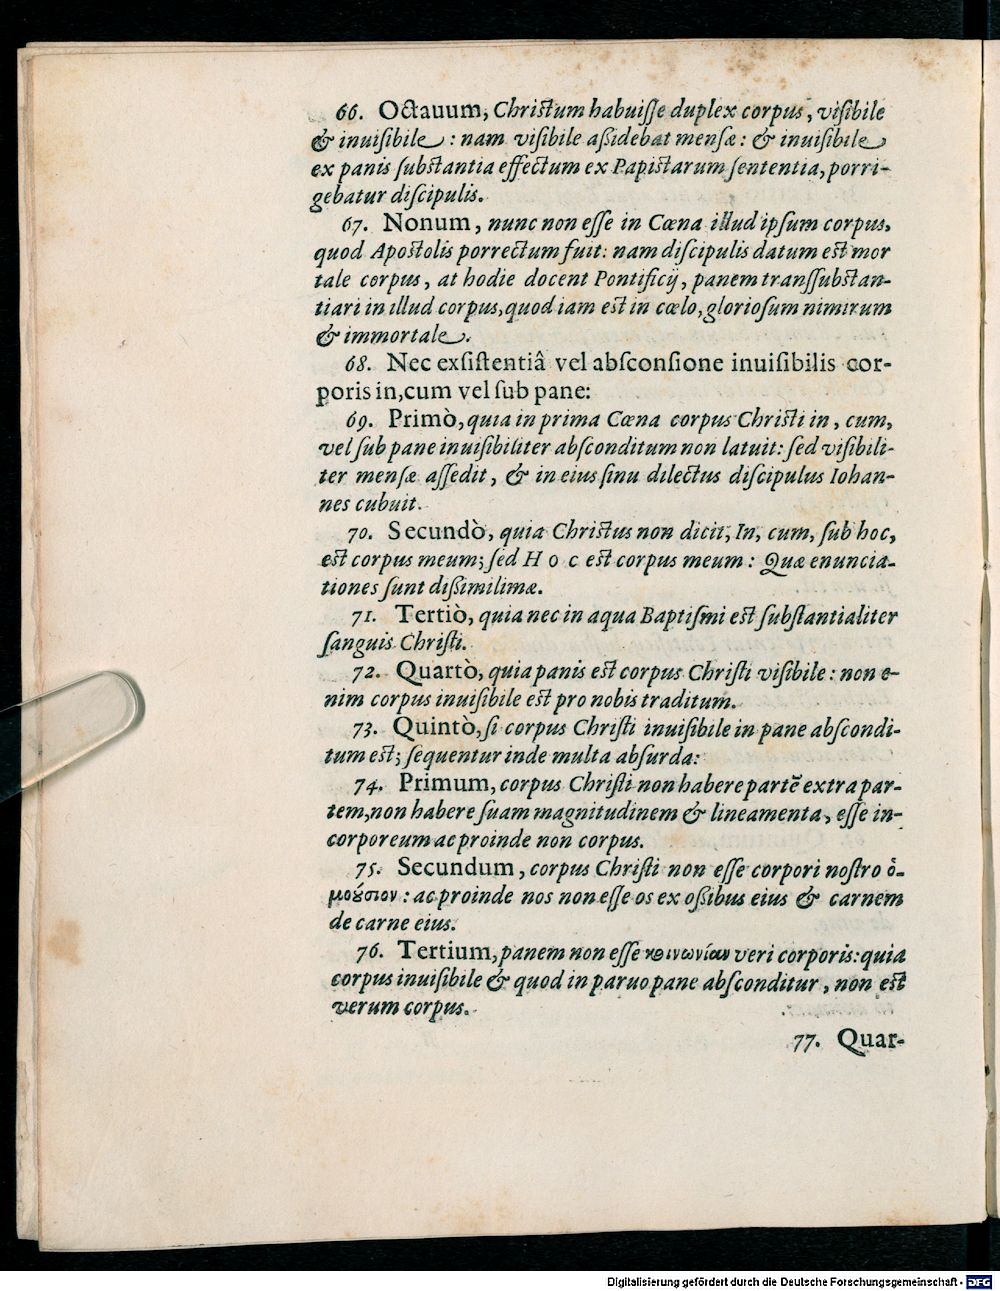 66. Octauum, Christum habuiſſe duplex corpus, viſibile
& inuiſibile: nam viſibile aßidebat menſæ: & inuiſibile
ex panis ſubstantia effectum ex Papistarum ſententia, porri-
gebatur diſcipulis.
67. Nonum, nunc non eſſe in Cœna illud ipſum corpus,
quod Apostolis porrectum fuit: nam diſcipulis datum est mor
tale corpus, at hodie docent Pontificij, panem transſubstan-
tiari in illud corpus, quod iam est in cœlo, glorioſum nimirum
& immortale.
68. Nec exſiſtentiâ vel abſconſione inuiſibilis cor-
poris in, cum vel ſub pane:
69. Primò, quia in prima Cœna corpus Christi in, cum,
vel ſub pane inuiſibiliter abſconditum non latuit: ſed viſibili-
ter menſæ aſſedit, & in eius ſinu dilectus diſcipulus Iohan-
nes cubuit.
70. Secundò, quia Christus non dicit, In, cum, ſub hoc,
est corpus meum; ſed H o c est corpus meum: Quæ enuncia-
tiones ſunt dißimilimæ.
71. Tertiò, quia nec in aqua Baptiſmi est ſubſtantialiter
ſanguis Chriſti.
72. Quartò, quia panis est corpus Chriſti viſibile: non e-
nim corpus inuiſibile est pro nobis traditum.
73. Quintò, ſi corpus Chriſti inuiſibile in pane abſcondi-
tum est; ſequentur inde multa abſurda:
74. Primum, corpus Chriſti non habere partē extra par-
tem, non habere ſuam magnitudinem & lineamenta, eſſe in-
corporeum ac proinde non corpus.
75. Secundum, corpus Chriſti non eſſe corpori noſtro ὁ-
μούσιον: ac proinde nos non eſſe os ex oßibus eius & carnem
de carne eius.
76. Tertium, panem non eſſe κοινωνίαν veri corporis: quia
corpus inuiſibile & quod in paruo pane abſconditur, non est
verum corpus.
77. Quar-
Digitalisierung gefördert durch die Deutsche Forschungsgemeinschaft - DFG